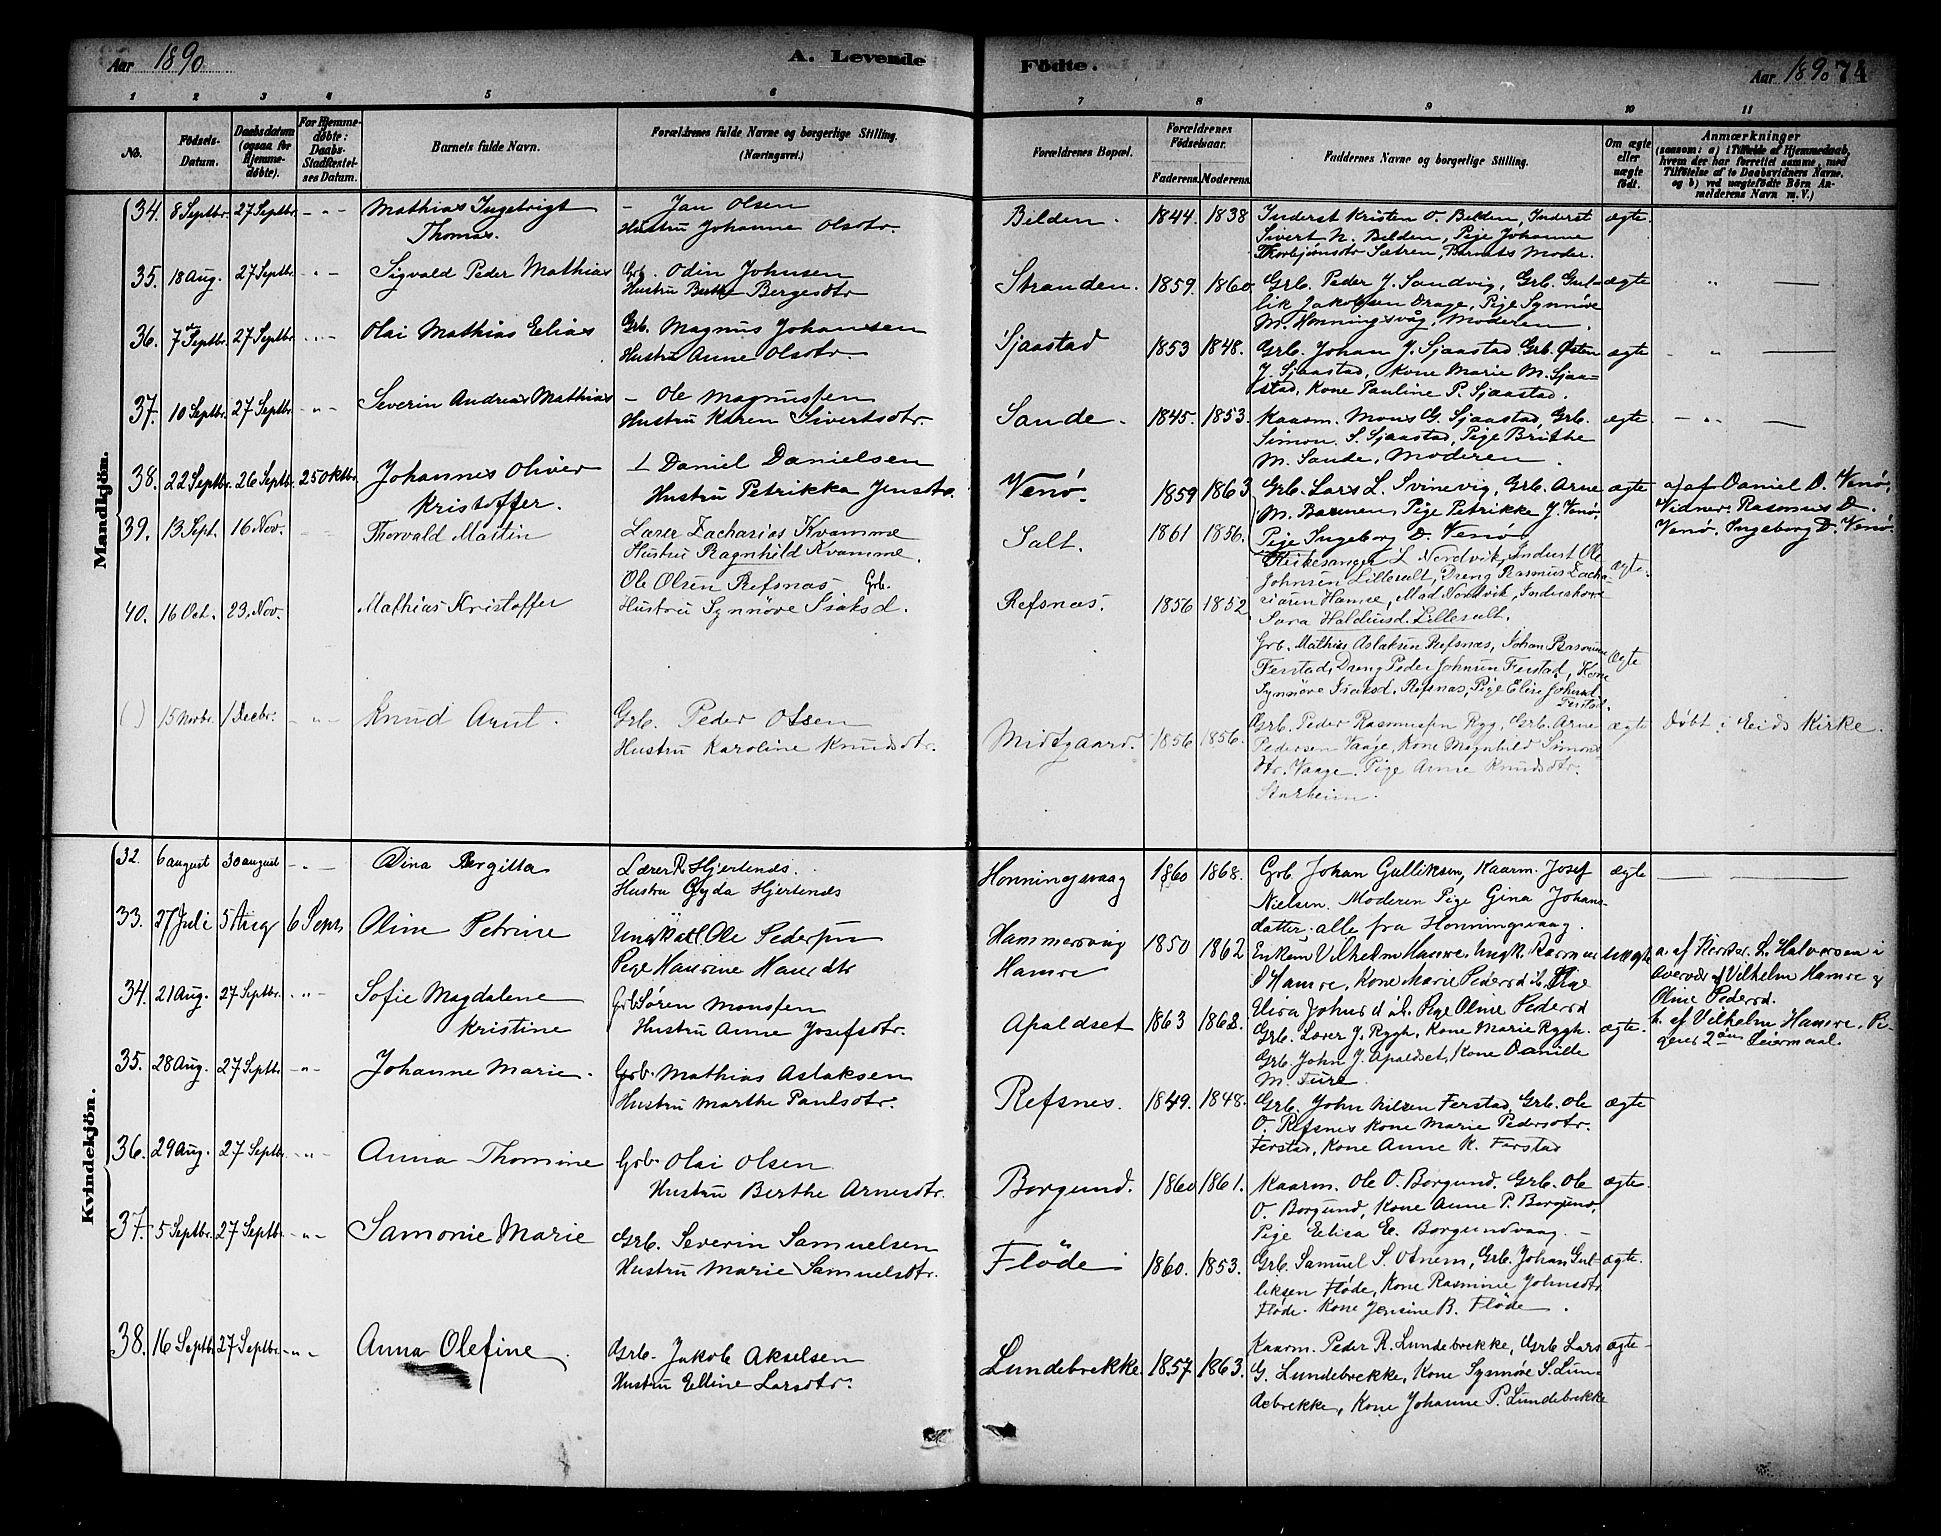 Aar 1890 A. Levende Födte. Aar 1890 74
1 2 3 4 5 6 7 8 9 10 11
No. Födsels-Datum. Daabsdatum (ogsaa for Hjemme-døbte). For Hjemme-døbte: Daabs-Stadfæstel-ses Datum. Barnets fulde Navn. Forældrenes fulde Navne og borgerlige Stilling. (Næringsvei.) Forældrenes Bopæl. Forældrenes Födselsaar. Faderens. Moderens. Faddernes Navne og borgerlige Stilling. Om ægte eller uægte födt. Anmærkninger (saasom: a) i Tilfælde af Hjemmedaab, hvem der har forrettet samme, med Tilföielse af to Daabsvidners Navne. og b) ved uægtefödte Börn An-melderens Navn m. V.)
Mandkjön.
34. 8 Septbr. 27 Septbr. - " - Mathias Ingebrigt - Jan Olsen Bilden. 1844. 1838 Inderst Kristen O. Bilden, Inderst ægte.
Thomas. Hustru Johanne Olsdtr. Sivert N. Bilden, Pige Johanne
Thorbjönsdtr Sætren, Barnets Moder.
35. 18 Aug. 27 Septbr. - " - Sigvald Peder Mathias Grb. Odin Johnsen Stranden. 1859. 1860. Grb. Peder J. Sandvig, Grb. Gul- ægte " —
Hustru Berthe Bergesdtr lik Jakobsen Drage, Pige Synnöve
M. Honningsvåg, Moderen.
36. 7de Septbr. 27 Septbr. - " - Olai Mathias Elias Grb. Magnus Johansen Sjaastad 1853 1848. Grb. Johan J. Sjaastad Grb. Østen ægte - " —
Hustru Anne Olsdtr J. Sjaastad, Kone Marie M. Sjaa-
stad, Kone Pauline P. Sjaastad.
37. 10 Septbr. 27 Septbr. - " - Severin Andreas Mathias - Ole Magnussen Sande. 1845. 1853. Kaarm. Mons G. Sjaastad, Grb. ægte - " - —
Hustru Karen Sivertsdtr. Simon. S. Sjaastad, Pige Brithe
M. Sande, Moderen.
38. 22 Septbr. 26 Septbr. 25 Oktbr. Johannes Oliver Daniel Danielsen Venø. 1859 1863 Grb. Lars L. Svinevig, Grb. Arne ægte a) af Daniel D. Venø.
Kristoffer. Hustru Petrikka Jensdtr. M. Barmen, Pige Petrikke J. Venø. Vidner. Rasmus D.
Pige Ingeborg D. Venø Venø. Ingeborg D. Venø.
39. 13 Sept. 16 Nov. Thorvald Martin Lærer Zacharias Kvamme Salt. 1861 1856. Kirkesanger L Nordvik, Inderst Ole ægte.
Hustru Ragnhild Kvamme. Johnsen Lillesalt, Dreng Rasmus Zacha-
riasen Hamre, Mad Nordvik, Inderstkone
Sara Haldrusd. Lillesalt.
40. 16 Oct. 23. Nov. Mathias Kristoffer Ole Olsen Refsnæs Grb. Refsnæs. 1856 1852 Grb. Mathias Aslaksen Refsnæs, Johan Rasmussen Ægte
Hustru Synnöve Isaksd. Ferstad, Dreng Peder Johnsen Ferstad, Kone
Synnöve Isaksd. Refsnæs, Pige Elise Johnsd.
Ferstad.
( ) 15 Novbr. 1 Decbr. - " - Knud Arnt. Grb. Peder Olsen Midtgaard. 1856 1856. Grb. Peder Rasmussen Ryg, Grb. Arne ægte Døbt i Eids Kirke.
Hustru Karoline Knudsdtr. Pedersen Vaage, Kone Magnhild Simons
dtr. Vaage. Pige Anne Knudsdtr.
Starheim.
Kvindekjön.
32. 6 august 30 august - " - Dina Bergitta Lærer R Hjertenes. Honningsvaag 1860 1868. Grb Johan Gulliksen, Kaarm. Josef ægte — —
Hustru Gyda Hjertenes Nielsen. Moderen Pige Gina Johans-
datter, alle fra Honningsvaag.
33. 27 Juli 5 Aug 6 Sept. Oline Petrine Ungkarl Ole Pederssen Hammersvig 1850 1862 Enkem Vilhelm Hamre. Ungk. Rasmus uægte a. af Kirkes. L. Halvorsen i
Pige Hansine Hansdtr Hamre Hamre, Kone Marie Pedersd ib. Pige Averøe af Vilhelm Hamre &
Elisa Johnsd ib. Pige Oline Pedersd Oline Pedersd.
b. af Vilhelm Hamre. Pi-
gens 2den Leiermaal.
34. 21 Aug. 27 Septbr. - " - Sofie Magdalene Grb Sören Monssen Apaldset 1863 1868. Grb. Lasse J. Rygh, Kone Marie Rygh. ægte.
Kristine Hustru Anne Josefsdtr. Grb. John J. Apaldset, Kone Danille
M. Fure.
35. 28 Aug. 27 Septbr. - " - Johanne Marie. Grb. Mathias Aslaksen Refsnes. 1849. 1848. Grb. John Nilsen Ferstad, Grb. Ole ægte
Hustru Marthe Paulsdtr. O. Refsnes Kone Marie Pedersdtr.
Ferstad, Kone Anne K. Ferstad
36. 29 Aug. 27 Septbr. - " - Anna Thomine Grb. Olai Olsen Borgund. 1860 1861. Kaarm. Ole O. Borgund. Grb. Ole ægte.
Hustru Berthe Arnesdtr. O. Borgund, Kone Anne P. Borgund,
Pige Elisa E. Borgundvaag. -
37. 5 Septbr. 27 Septbr. - " - Samonie Marie Grb. Severin Samuelsen Flöde 1860. 1853. Grb. Samuel S. Otnem, Grb. Johan Gul- ægte.
Hustru Marie Samuelsdtr. liksen Flöde, Kone Rasmine Johnsdtr
Flöde. Kone Jensine B. Flöde.
38. 16 Septbr. 27 Septbr. - " - Anna Olefine. Grb. Jakob Akselsen Lundebrekke. 1857. 1863. Kaarm. Peder R. Lundebrekke, Grb Lars ægte-
Hustru Elline Larsdtr. G. Lundebrekke, Kone Synnöve S. Lun-
debrekke, Kone Johanne P. Lundebrekke